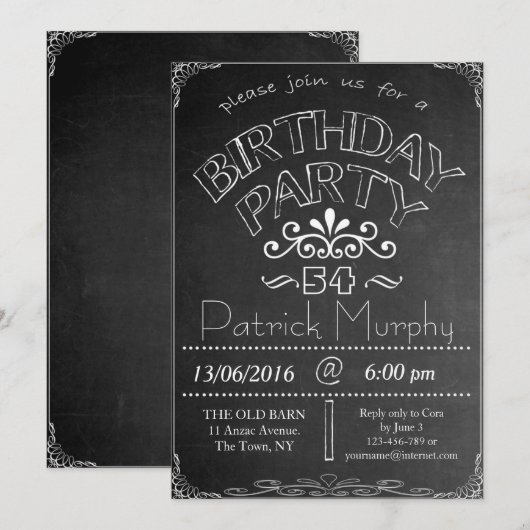 please join us for a
BIRTHDAY
PARTY
54
Patrick Murphy
13/06/2016 @ 6:00 pm
THE OLD BARN
11 Anzac Avenue.
The Town, NY
Reply only to Cora
by June 3
123-456-789 or
yourname@internet.com